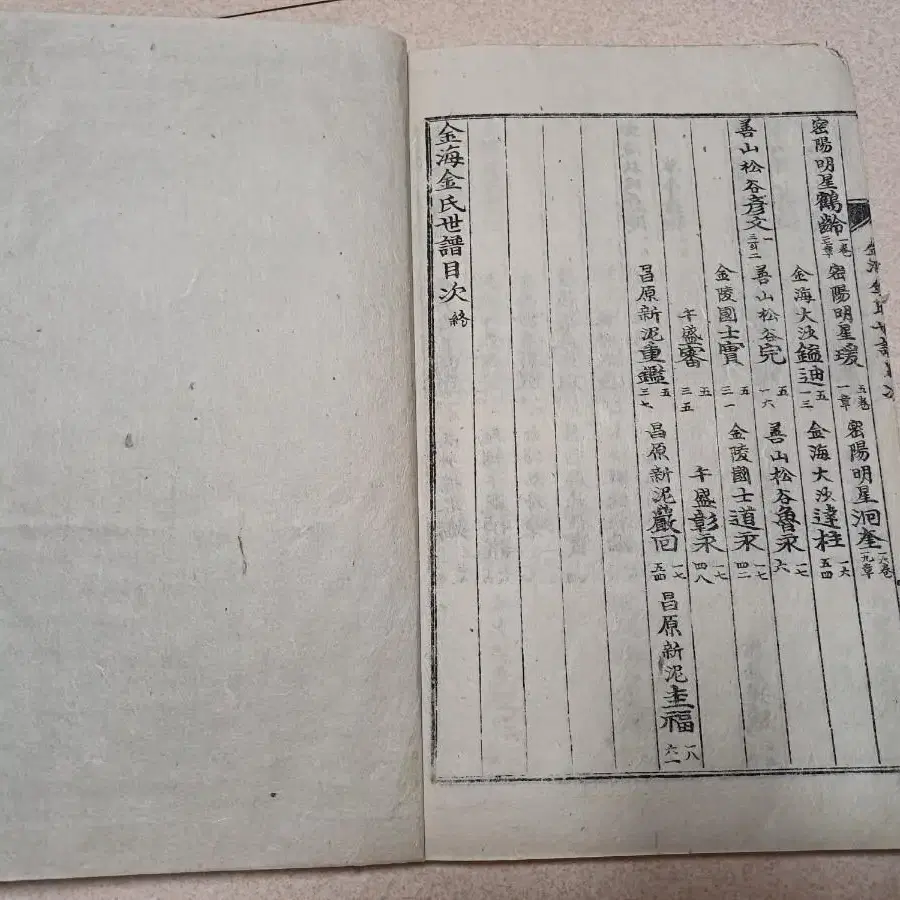 金海金氏世譜目次
密陽明星鶴齡 一卷三章 密陽明星瑗 五卷一章 密陽明星洄奎 一六卷一九章
金海大沙鎰迪 五 一三 金海大沙達桂 一六 五四
善山松谷彦文 一 三百二 善山松谷完 五 一六 善山松谷魯永 一七 六
金陵國士寶 五 三一 金陵國士道永 一七 四二
午盛審 五 三五 午盛彰永 一七 四八
昌原新泥重鑑 五 三七 昌原新泥嚴回 一七 五四 昌原新泥圭福 一八 六一
金海金氏世譜目次 終